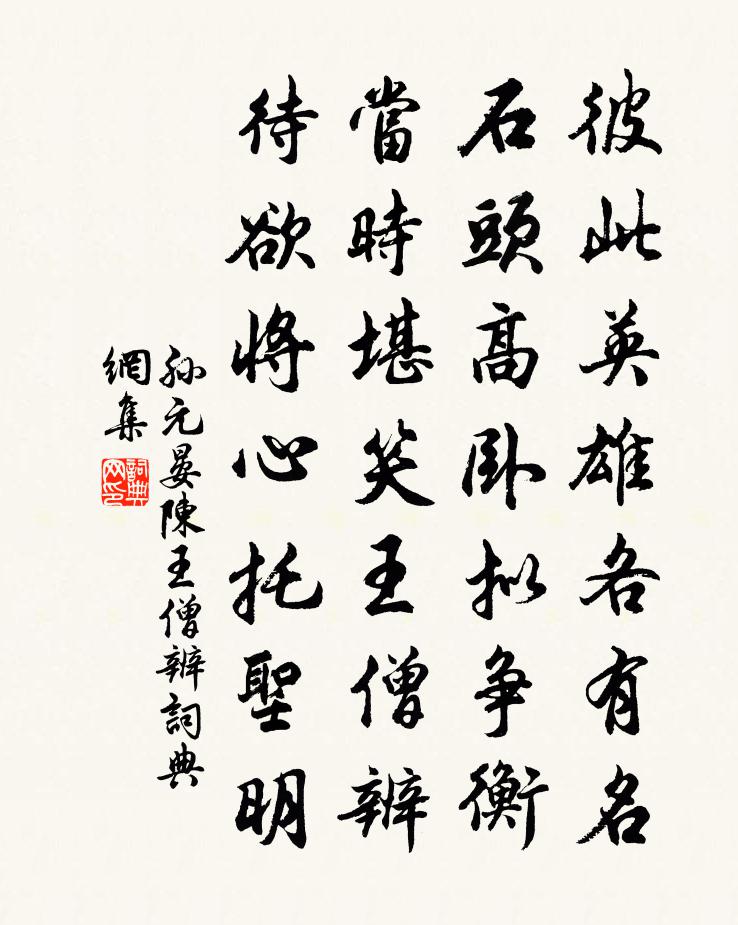 彼此英雄各有名
石頭高臥擬爭衡
當時堪笑王僧辨
待欲將心托聖明
孫元晏陳王僧辨詞典
網集
詞典
网印